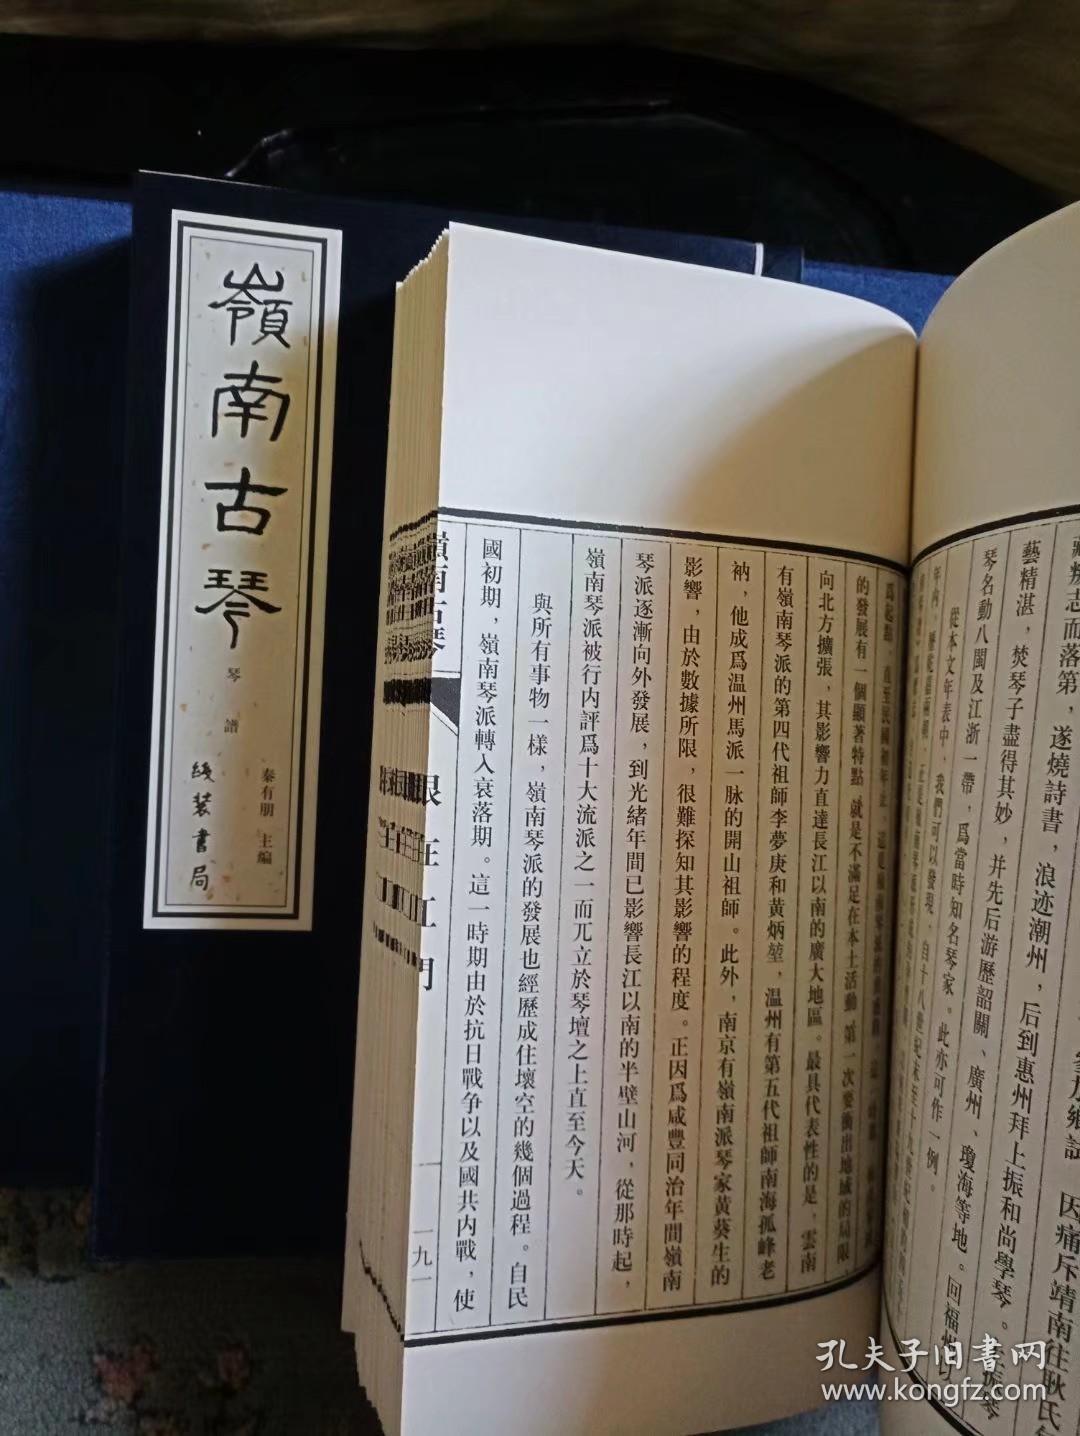 嶺南古琴
琴譜
秦有朋 主編
綫装書局
藝精湛，焚琴子盡得其妙，并先后游歷韶關、廣州、瓊海等地。回福州
琴名動八閩及江浙一帶，爲當時知名琴家。此亦可作一例。
從本文年表中，我們可以發現，自十八世紀末至十九世紀
爲起點，直至民國初年止，這是嶺南琴派的
的發展有一個顯著特點 就是不滿足在本土活動 第一次要衝出地域的局限
向北方擴張，其影響力直達長江以南的廣大地區。最具代表性的是，雲南
有嶺南琴派的第四代祖師李夢庚和黃炳堃，温州有第五代祖師南海孤峰老
衲，他成爲温州馬派一脉的開山祖師。此外，南京有嶺南派琴家黄葵生的
影響，由於數據所限，很難探知其影響的程度。正因爲咸豐同治年間嶺南
琴派逐漸向外發展，到光緒年間已影響長江以南的半壁山河，從那時起，
嶺南琴派被行内評爲十大流派之一而兀立於琴壇之上直至今天。
與所有事物一樣，嶺南琴派的發展也經歷成住壞空的幾個過程。自民
國初期，嶺南琴派轉入衰落期。這一時期由於抗日戰争以及國共内戰，使
嶺南古琴
一九一
志而落第，遂燒詩書，浪迹潮州，后到惠州拜上振和尚學琴。
鄉試 因痛斥靖南往耿氏
孔夫子旧書网
www.kongfz.com